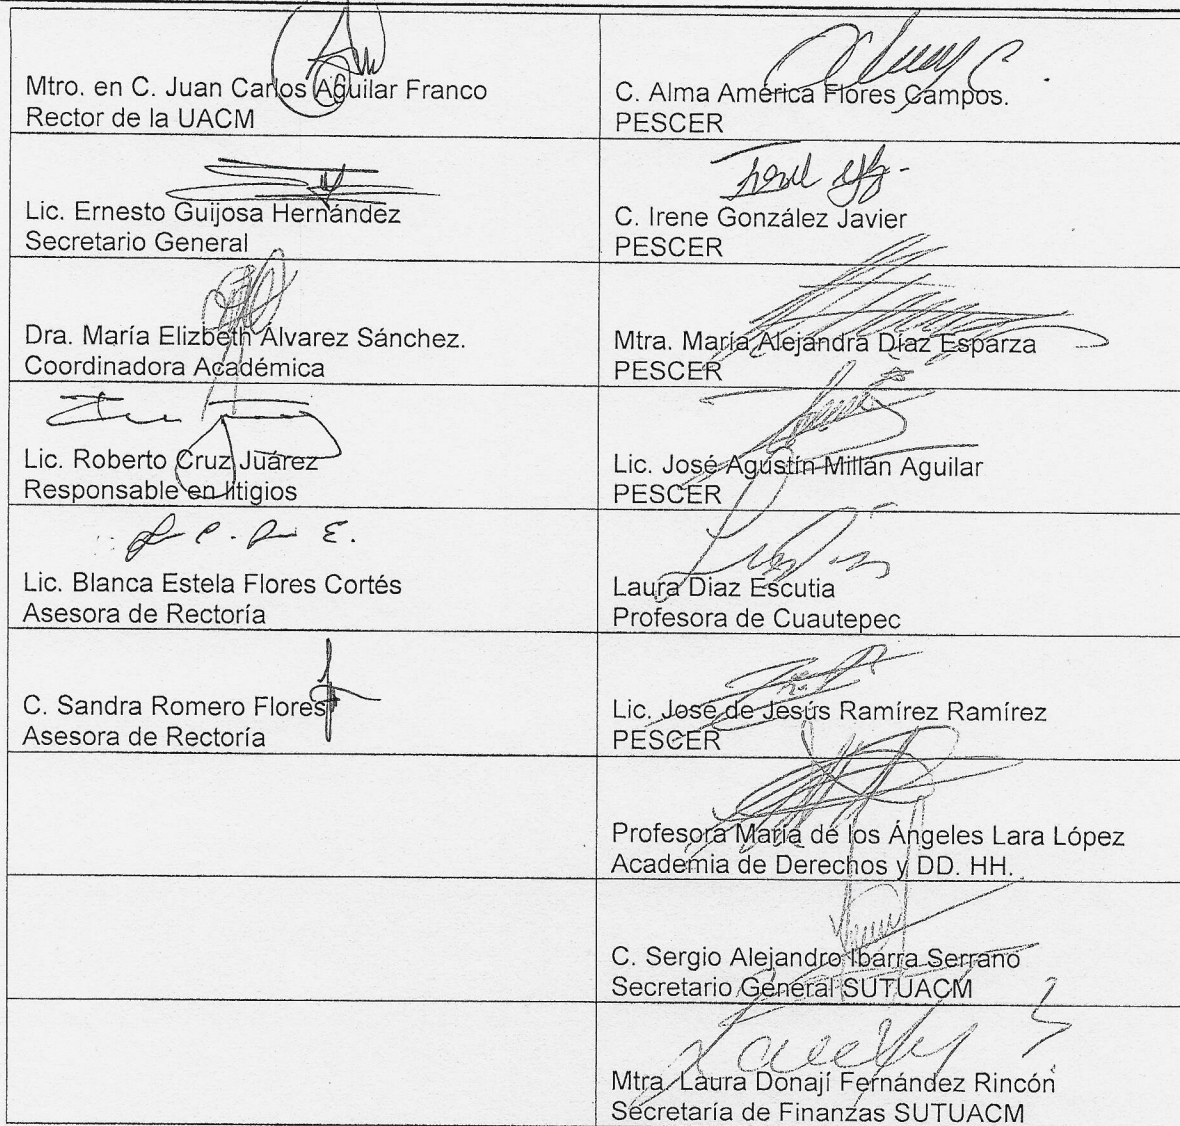 Mtro. en C. Juan Carlos Aguilar Franco
Rector de la UACM
C. Alma América Flores Campos.
PESCER
Lic. Ernesto Guijosa Hernández
Secretario General
C. Irene González Javier
PESCER
Dra. María Elizbeth Álvarez Sánchez.
Coordinadora Académica
Mtra. María Alejandra Díaz Esparza
PESCER
Lic. Roberto Cruz Juárez
Responsable en litigios
Lic. José Agustín Millán Aguilar
PESCER
Lic. Blanca Estela Flores Cortés
Asesora de Rectoría
Laura Diaz Escutia
Profesora de Cuautepec
C. Sandra Romero Flores
Asesora de Rectoría
Lic. José de Jesús Ramírez Ramírez
PESCER
Profesora María de los Ángeles Lara López
Academia de Derechos y DD. HH.
C. Sergio Alejandro Ibarra Serrano
Secretario General SUTUACM
Mtra. Laura Donají Fernández Rincón
Secretaría de Finanzas SUTUACM